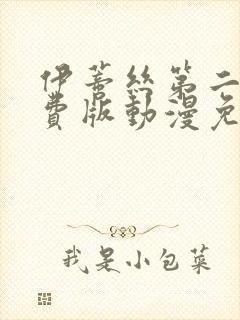 伊蒂丝第二
費版動漫免
我是小包菜